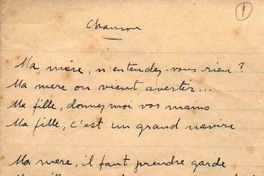 1
Chanson
Ma mère, n'entendez-vous rien ?
Ma mère on vient avertir...
Ma fille, donnez moi vos mains
Ma fille, c'est un grand navire
Ma mère, il faut prendre garde